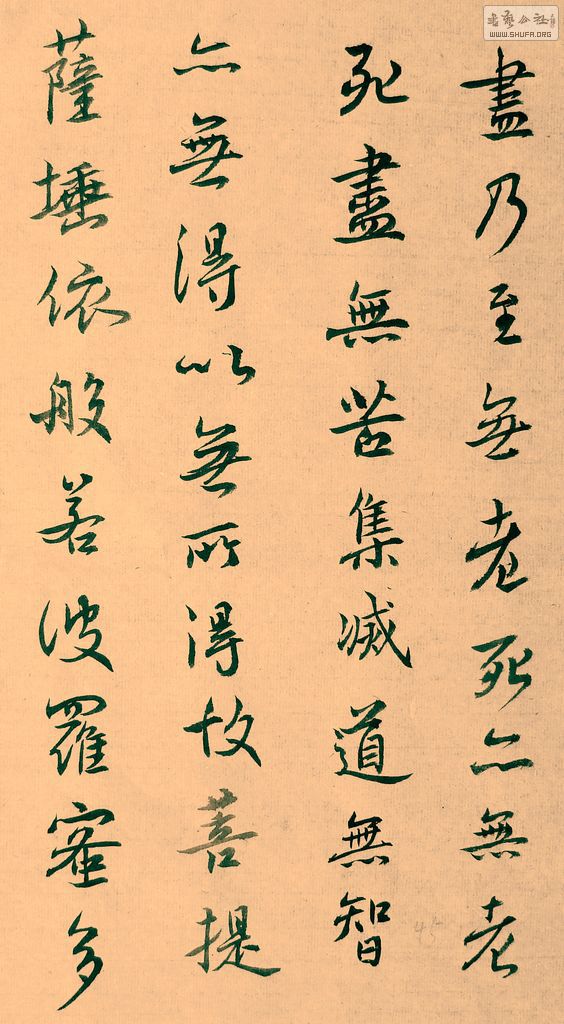 盡乃至無老死亦無老
死盡無苦集滅道無智
亦無得以無所得故菩提
薩埵依般若波羅蜜多
书艺公社
WWW.SHUFA.ORG
45